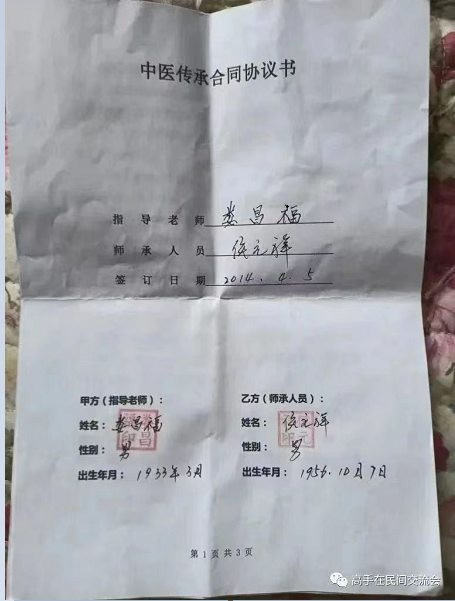 中医传承合同协议书
指导老师 娄昌福
师承人员 侯元祥
签订日期 2014.4.5
甲方（指导老师）：
姓名：娄昌福
性别：男
出生年月：1933年3月
乙方（师承人员）：
姓名：侯元祥
性别：男
出生年月：1956.10月7日
第1页共3页
高手在民间交流会